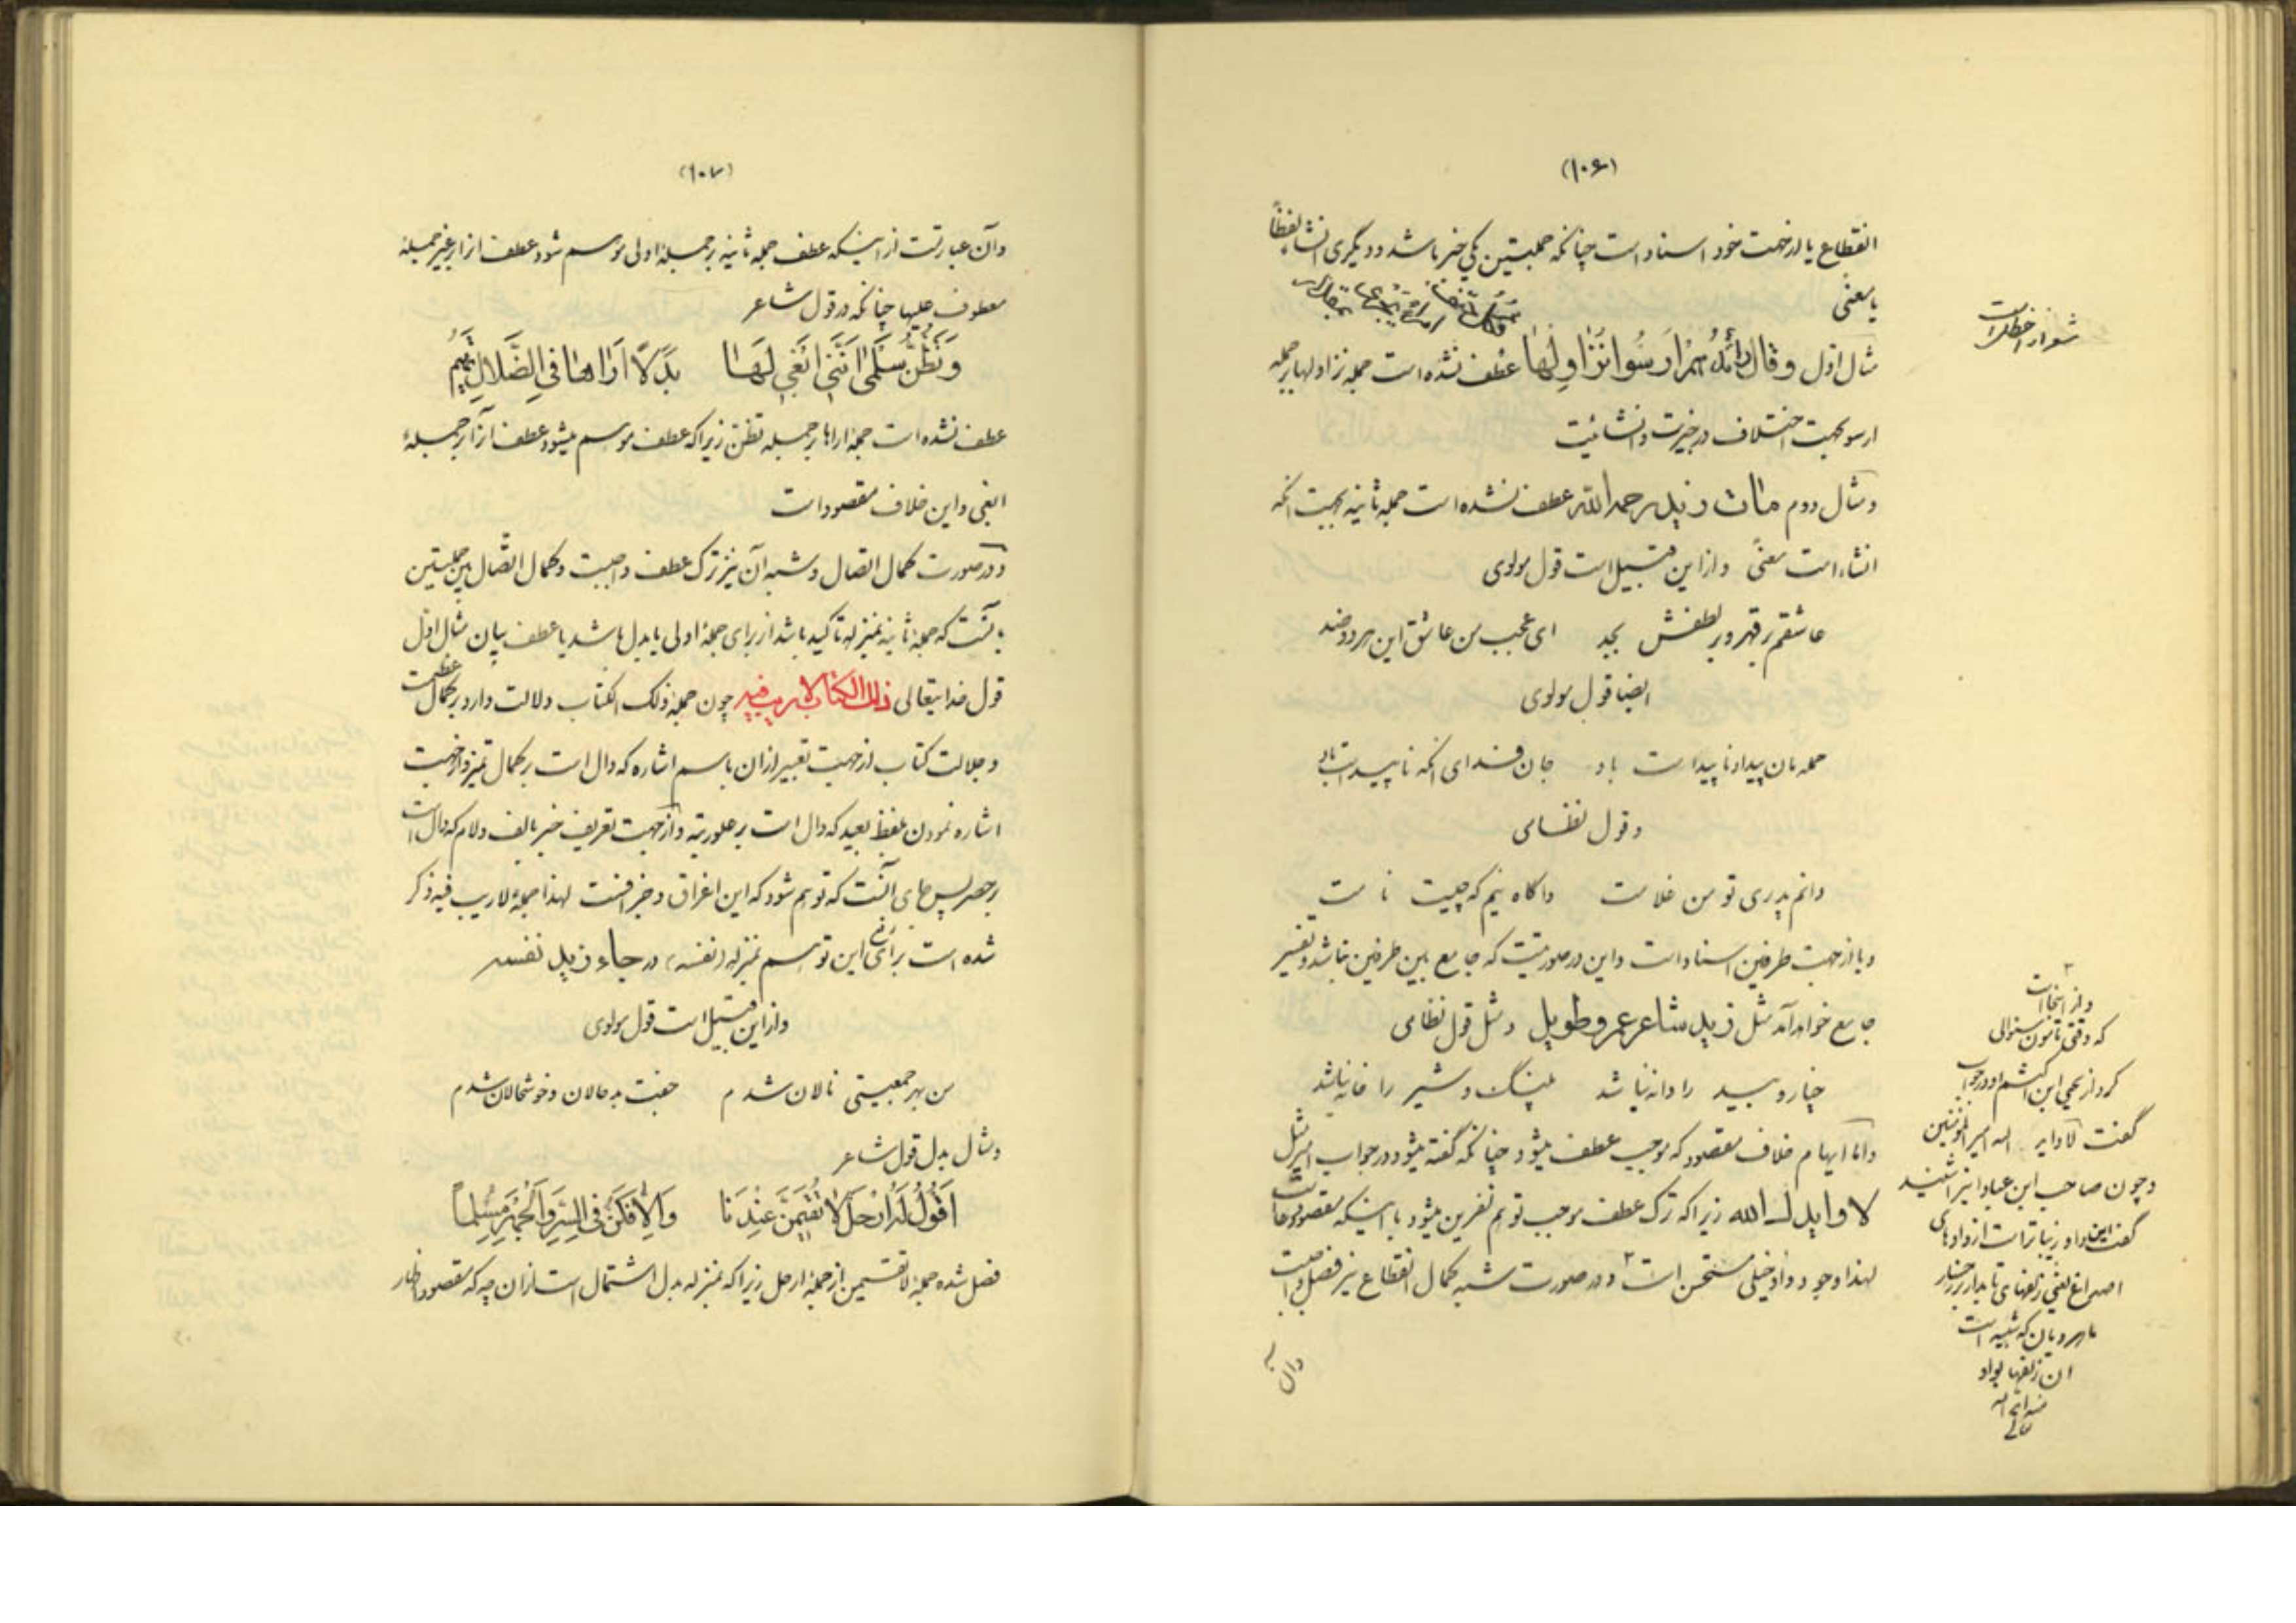 (۱۰۶)
انقطاع یا از جهت خود اسناد است چنانکه جملتین یکی خبر باشد و دیگری انشا لفظاً
یا معنی
مثال اول وقال رائدهم ارسوا نزاولها عطف نشده است جمله نزاولها بر جمله
ارسو بجهت اختلاف در خبریت و انشائیت
و مثال دوم مات زید رحمه الله عطف نشده است جمله ثانیه بجهت انکه
انشاء است معنیً و از این قبیل است قول مولوی
عاشقم بر قهر و بر لطفش بجد ای عجب من عاشق این هر دو ضد
ایضا قول مولوی
حمله مان پیدا و ناپیداست باد جان فدای انکه ناپیداست باد
و قول نظامی
دانم پدری تو من غلامت واگاه نیم که چیست نامت
و یا از جهت طرفین اسناد است و این در صورتیست که جامع بین طرفین نباشد و تفسیر
جامع خواهد آمد مثل زید شاعر عمرو طویل و مثل قول نظامی
خار و سید را دانه نباشد پلنگ و شیر را خانه نباشد
و اما ایهام خلاف مقصود که موجب عطف میشود چنانکه گفته میشود در جواب امر مثل
لا وایدك الله زیرا که ترک عطف موجب توهم نفرین میشود با اینکه مقصود دعا است
لهذا وجود واو خیلی مستحسن است ۲ و در صورت شبه کمال انقطاع نیز فصل واجبست
و از اینجا است
که وقتی مأمون سئوالی
کرد از یحیی ابن اکثم او در جواب
گفت لا واید الله امیر المؤمنین
و چون صاحب ابن عباد اینرا شنید
گفت این واو زیباتر است از واوهای
اصداغ یعنی زلفهای تابدار بر رخسار
ماهرویان که شبیه است
ان زلفها بواو
(۱۰۷)
وآن عبارتست از اینکه عطف جمله ثانیه بر جملهٔ اولی موهم شود عطف انرا بر غیر جملهٔ
معطوف علیها چنانکه در قول شاعر
وَتَظُنُّ سَلْمَى اَنَّنِي اَبْغِي لَهَا بَدَلاً اُرَاهَا فِي الضَّلَالِ تَهِيمُ
عطف نشده است جملهٔ اراها بر جمله تظن زیرا که عطف موهم میشود عطف آنرا بر جملهٔ
ابغی و این خلاف مقصود است
و در صورت کمال اتصال و شبه آن نیز ترک عطف واجبست و کمال اتصال بین جملتین
بانست که جملهٔ ثانیه بمنزله تاکید باشد از برای جملهٔ اولی یا بدل باشد یا عطف بیان مثال اول
قول خدایتعالی ذلك الكتاب لاريب فيه چون جملهٔ ذلک الکتاب دلالت دارد بر کمال عظمت
و جلالت کتاب از جهت تعبیر از ان باسم اشاره که دال است بر کمال تمیز و از جهت
اشاره نمودن بلفظ بعید که دال است بر علو رتبه و از جهت تعریف خبر بالف و لام که دال است
بر حصر پس جای آنست که توهم شود که این اغراق و جزافست لهذا جملهٔ لاریب فیه ذکر
شده است برای رفع این توهم بمنزله (نفسه) در جاء زید نفسه
و از این قبیل است قول مولوی
من بهر جمعیتی نالان شدم جفت بدحالان و خوشحالان شدم
و مثال بدل قول شاعر
اَقُولُ لَهُ ارْحَلْ لَا تُقِيمَنَّ عِنْدَنَا وَاِلَّا فَكُنْ فِي السِّرِّ وَالْجَهْرِ مُسْلِماً
فصل شده جملهٔ لا تقیمن از جملهٔ ارحل زیرا که بمنزله بدل اشتمال است از ان چه که مقصود اظهار